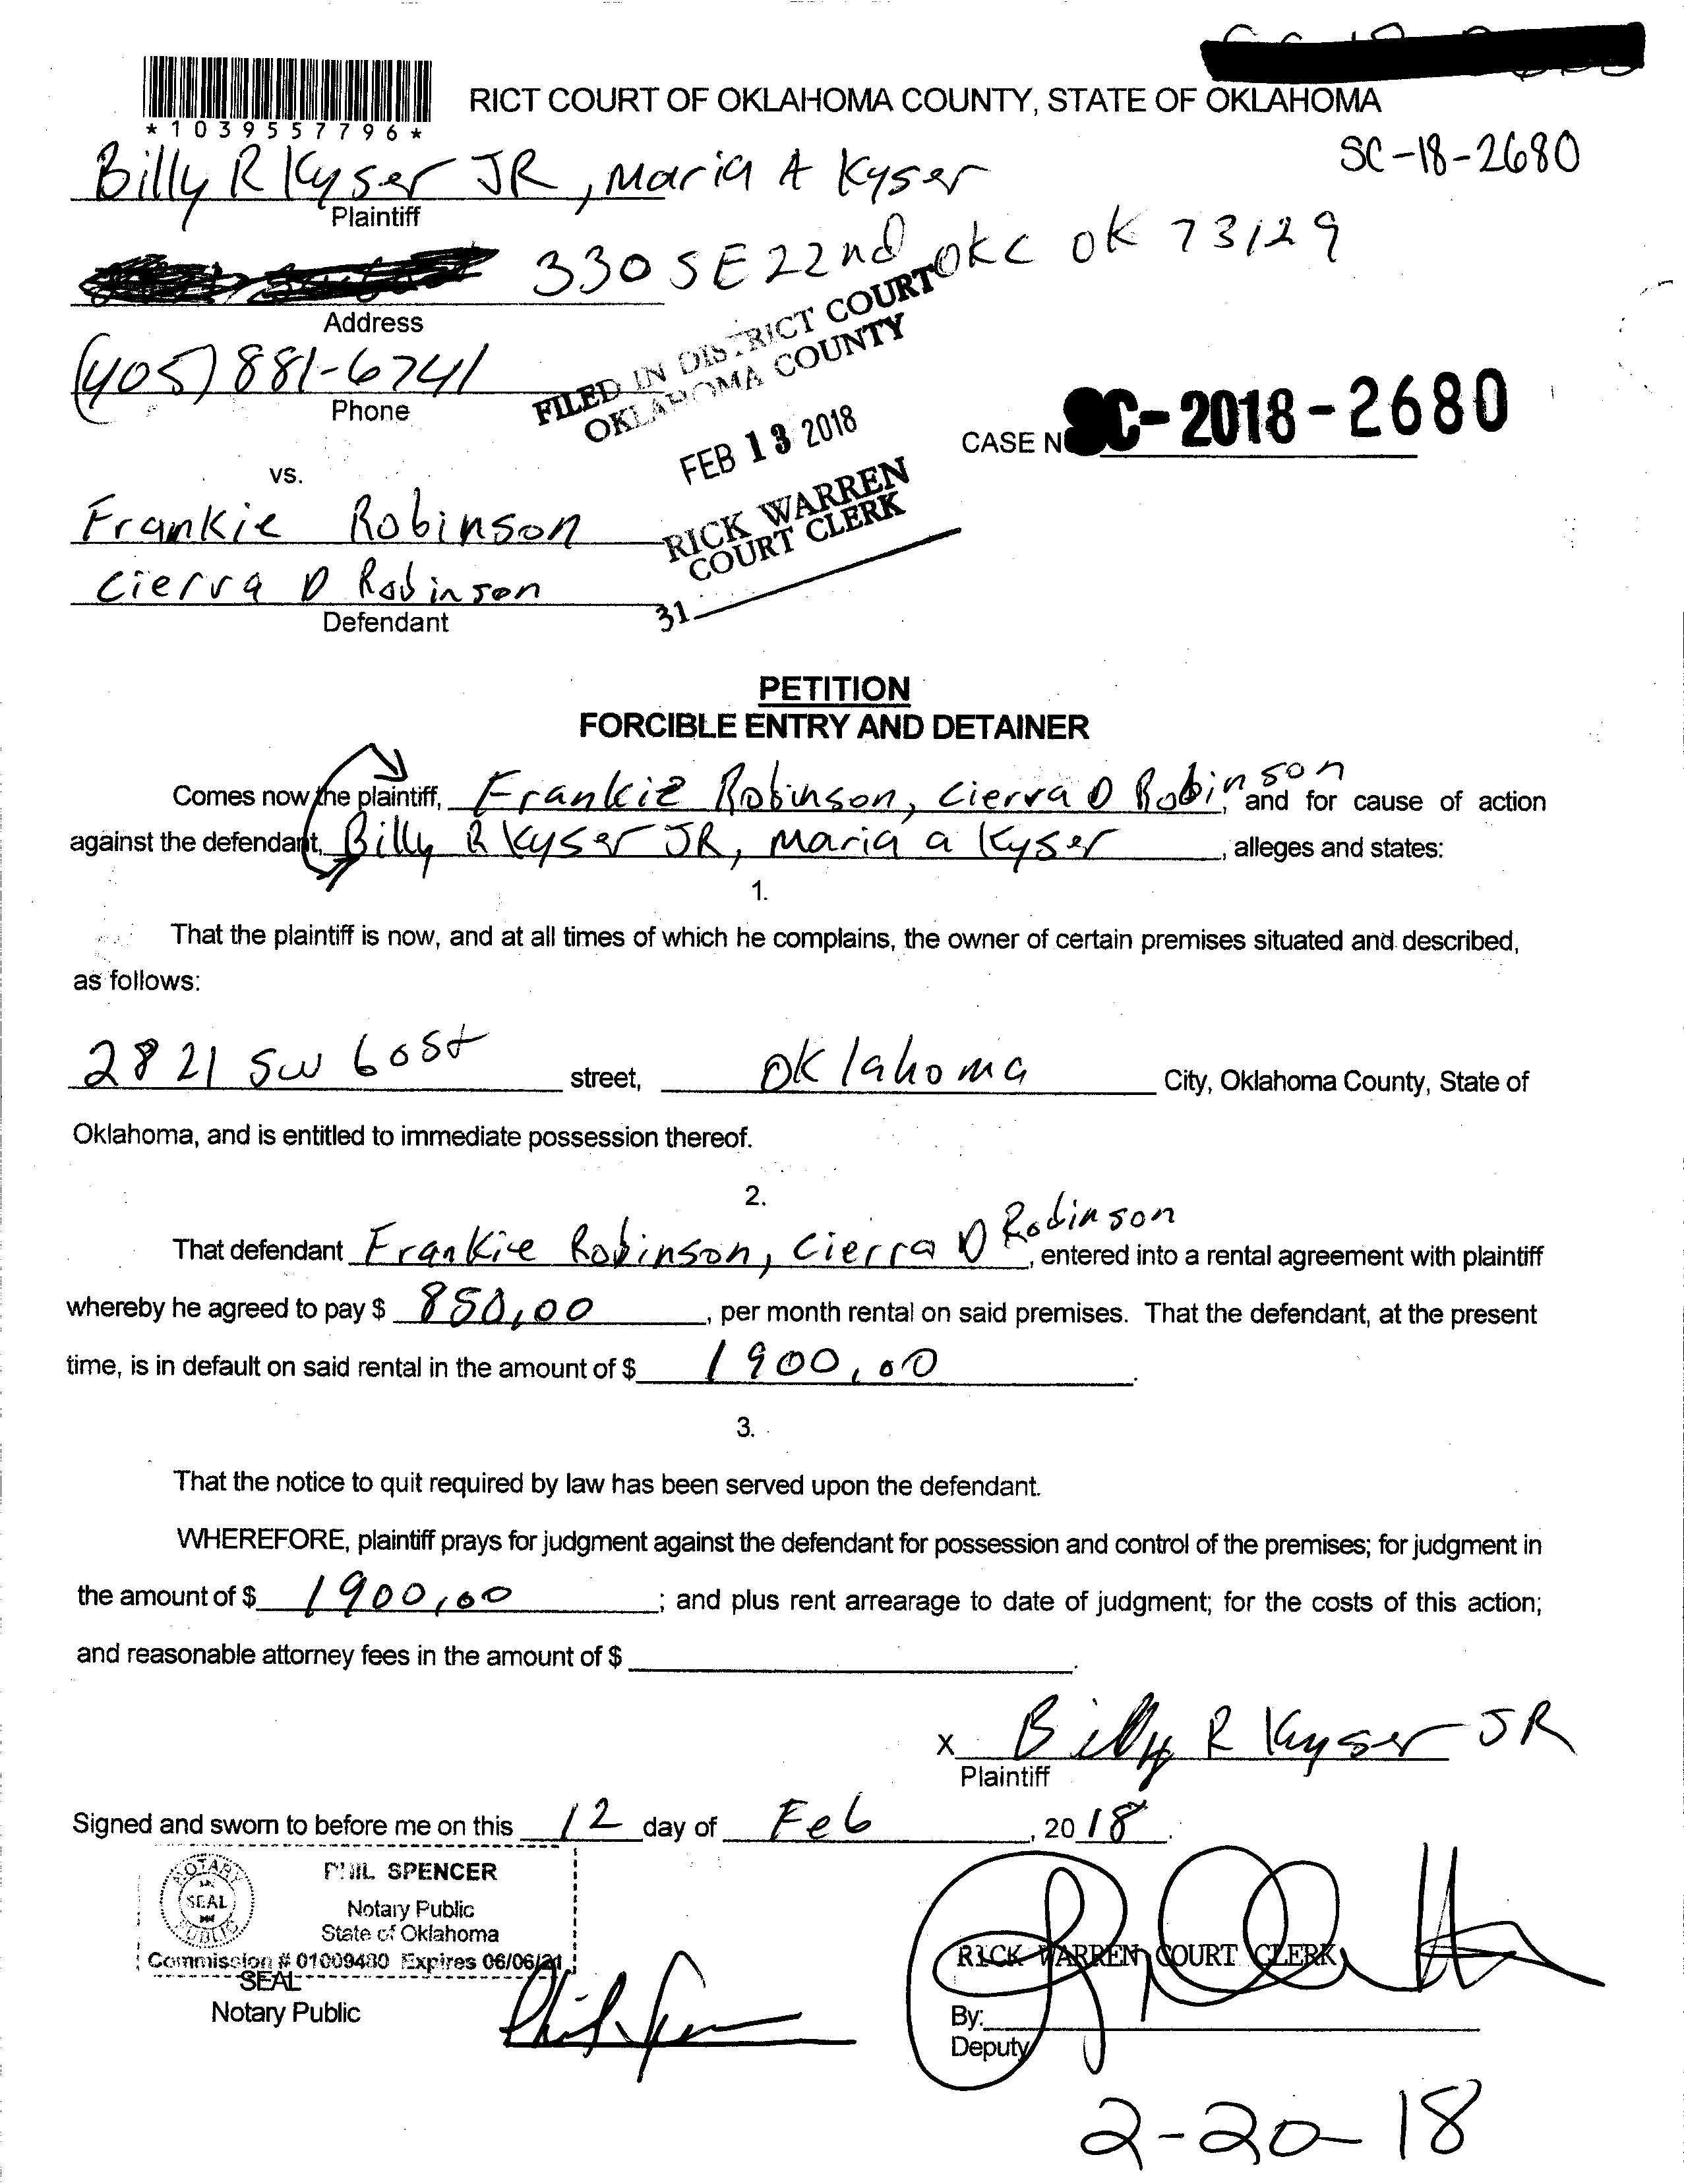 RICT COURT OF OKLAHOMA COUNTY, STATE OF OKLAHOMA
*1039557796*
SC-18-2680
Billy R Kyser JR, Maria A Kyser
Plaintiff
330 SE 22nd OKC OK 73129
Address
(405) 881-6741
Phone
FILED IN DISTRICT COURT
OKLAHOMA COUNTY
FEB 13 2018
RICK WARREN
COURT CLERK
31
CASE N SC-2018-2680
vs.
Frankie Robinson
Cierra D Robinson
Defendant
PETITION
FORCIBLE ENTRY AND DETAINER
Comes now the plaintiff, Frankie Robinson, Cierra D Robinson, and for cause of action
against the defendant, Billy R Kyser JR, Maria a Kyser, alleges and states:
1.
That the plaintiff is now, and at all times of which he complains, the owner of certain premises situated and described,
as follows:
2821 SW 60St street, Oklahoma City, Oklahoma County, State of
Oklahoma, and is entitled to immediate possession thereof.
2.
That defendant Frankie Robinson, Cierra D Robinson, entered into a rental agreement with plaintiff
whereby he agreed to pay $ 850,00, per month rental on said premises. That the defendant, at the present
time, is in default on said rental in the amount of $ 1900,00.
3.
That the notice to quit required by law has been served upon the defendant.
WHEREFORE, plaintiff prays for judgment against the defendant for possession and control of the premises; for judgment in
the amount of $ 1900,00; and plus rent arrearage to date of judgment; for the costs of this action;
and reasonable attorney fees in the amount of $
x Billy R Kyser JR
Plaintiff
Signed and sworn to before me on this 12 day of Feb, 20 18.
NOTARY
SEAL
PUBLIC
PHIL SPENCER
Notary Public
State of Oklahoma
Commission # 01009480 Expires 06/06/21
SEAL
Notary Public
Phil Spencer
RICK WARREN, COURT CLERK
By:
Deputy
2-20-18